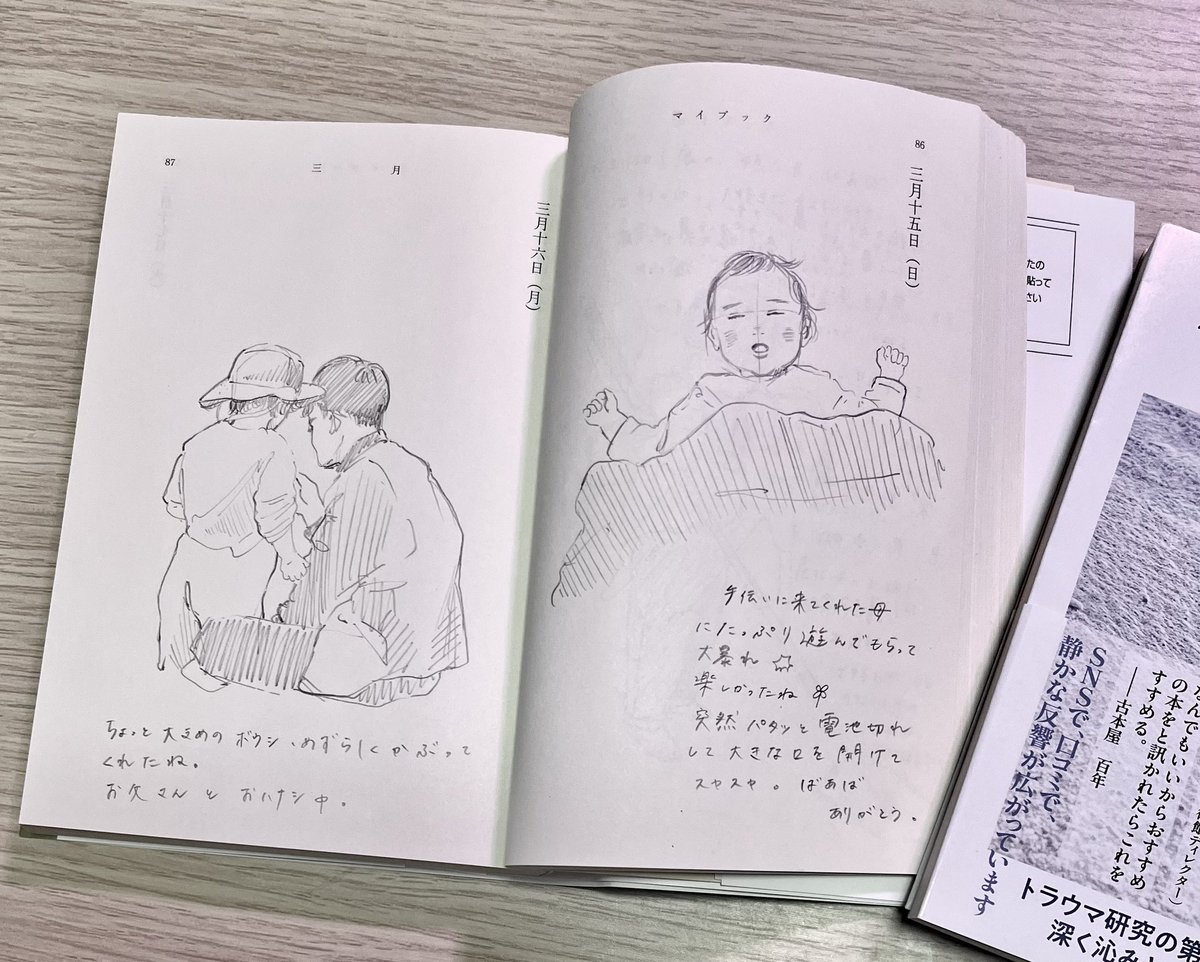 マイブック
86
三月十五日（日）
手伝いに来てくれた母
にたっぷり遊んでもらって
大暴れ
楽しかったね
突然パタッと電池切れ
して大きな口を開けて
スヤスヤ。ばあば
ありがとう。
87
三月
三月十六日（月）
ちょっと大きめのボウシ、めずらしくかぶって
くれたね。
お父さんとおハナシ中。
たの
貼って
さい
ディレクター）
なんでもいいからおすすめ
の本をと訊かれたらこれを
すすめる。
——古本屋 百年
SNSで、口コミで、
静かな反響が広がっています
トラウマ研究の第
深く沁み